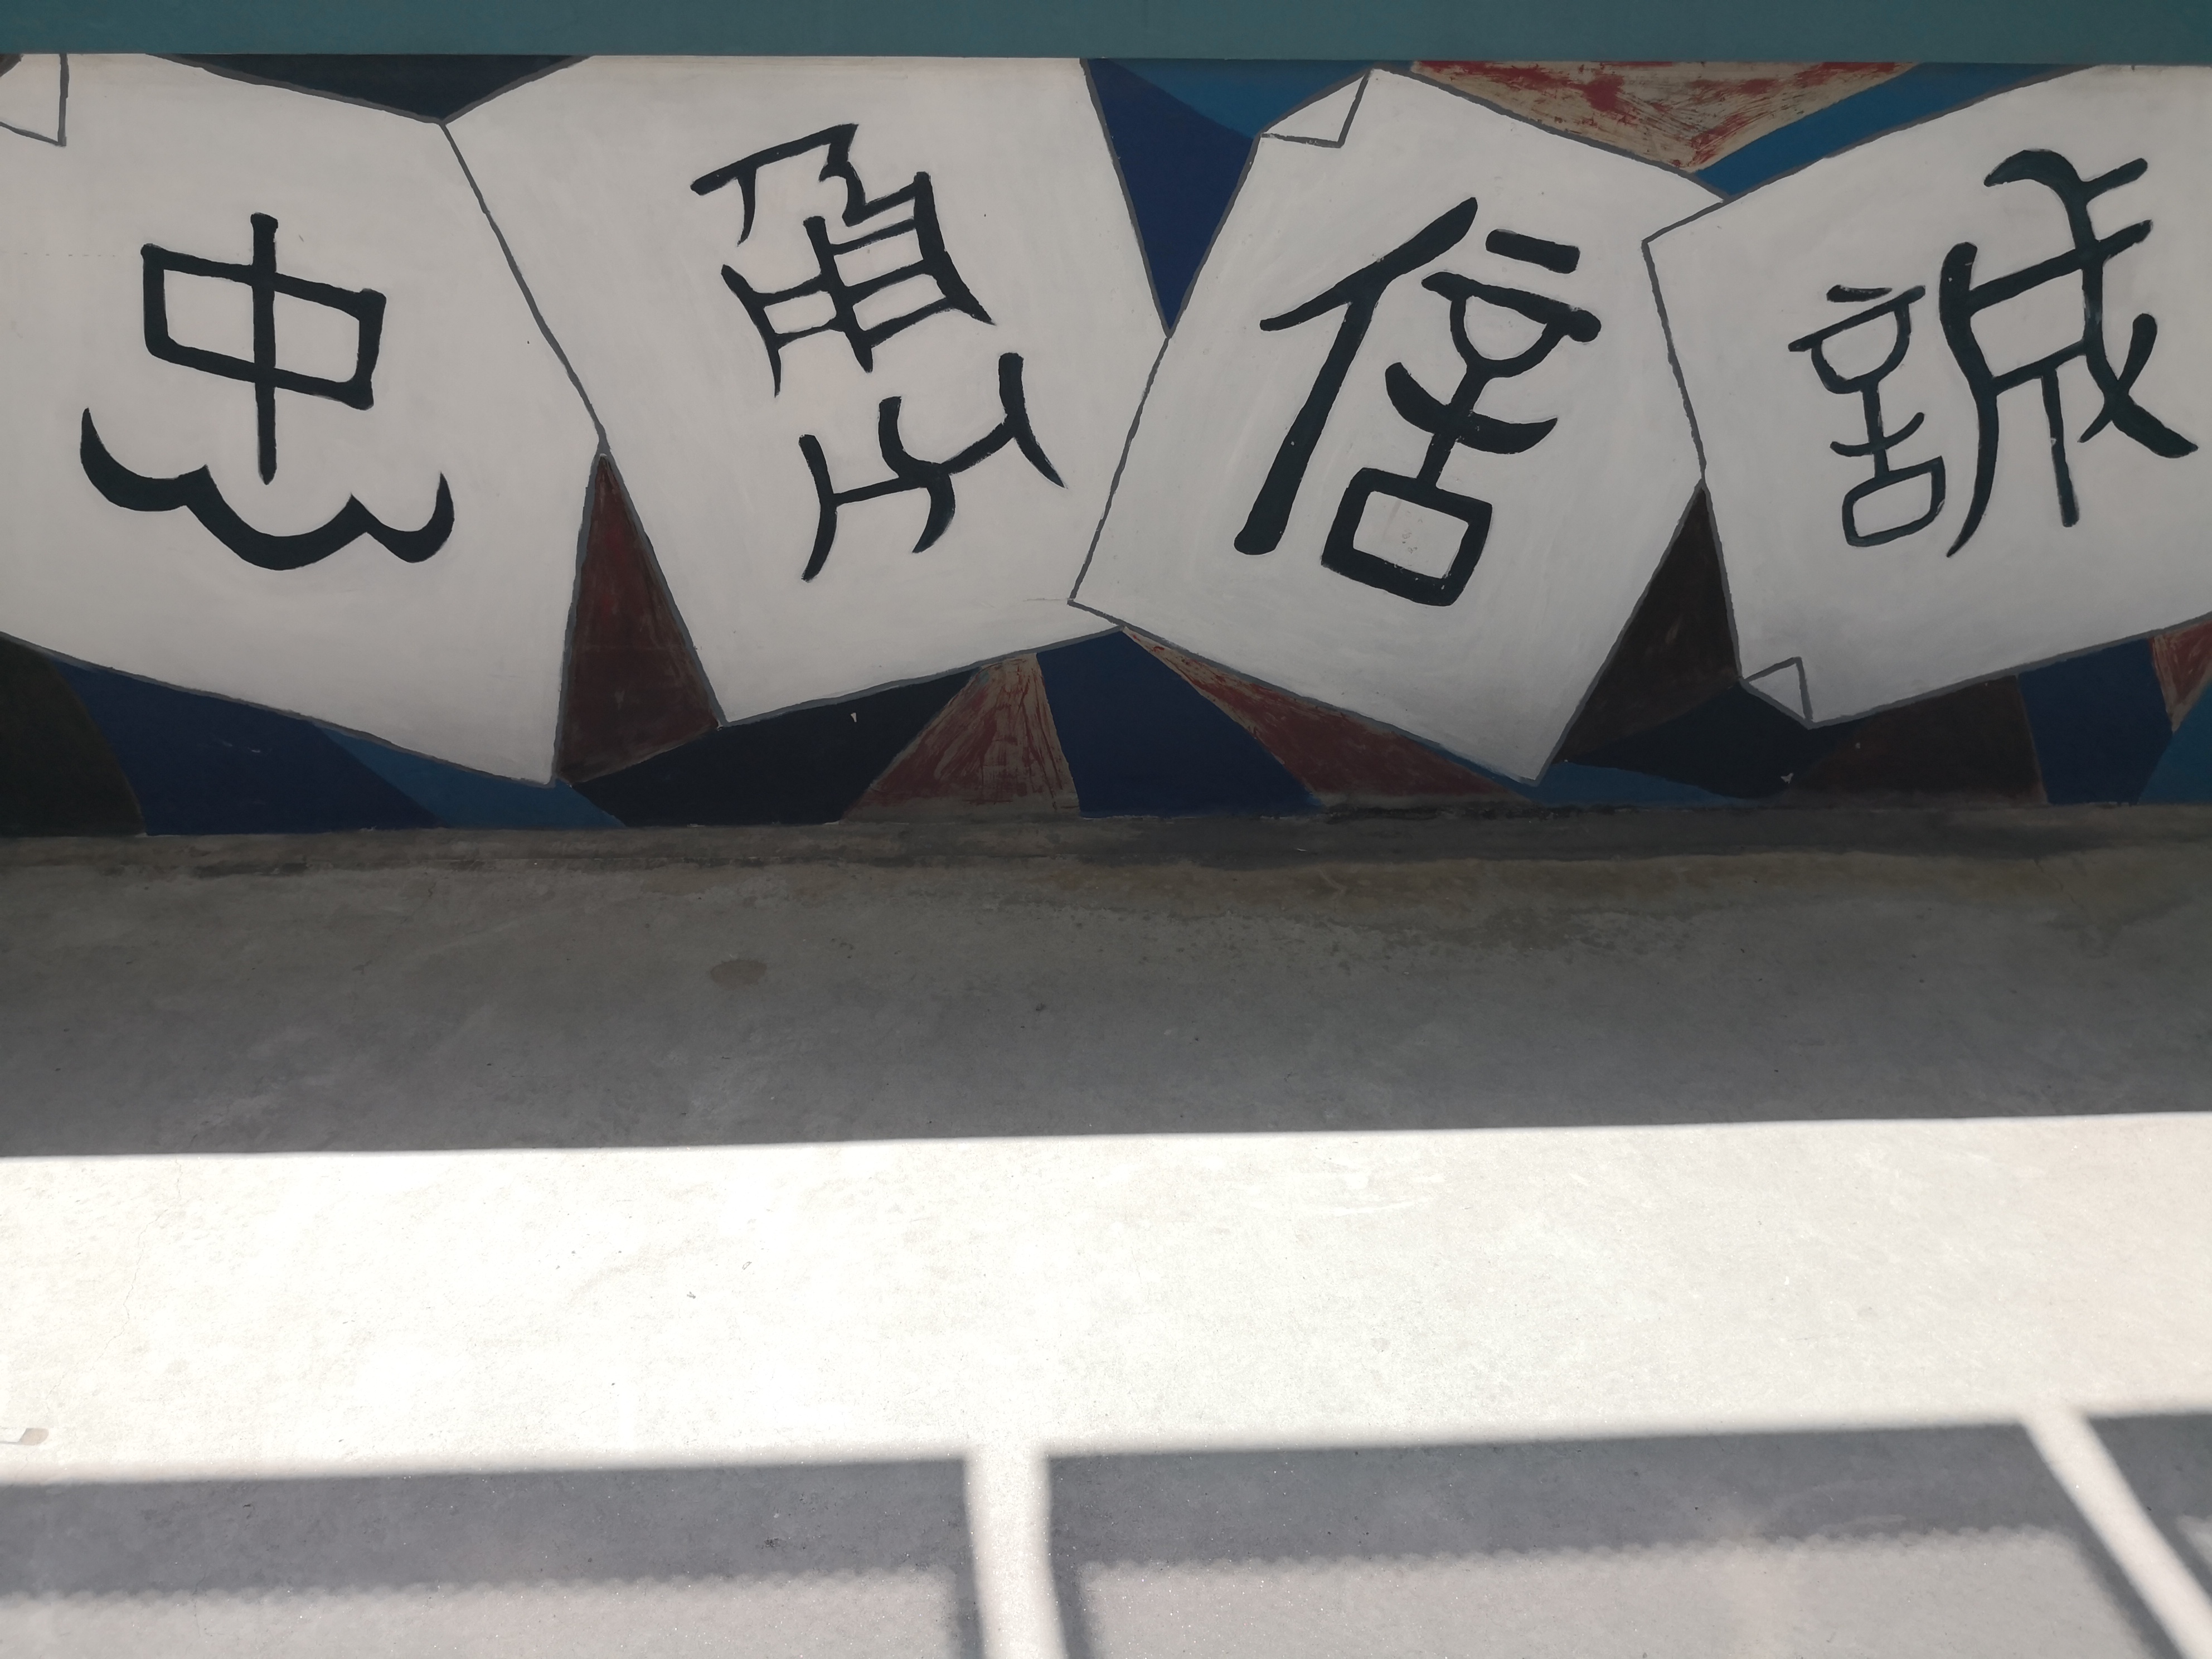 忠勇信誠